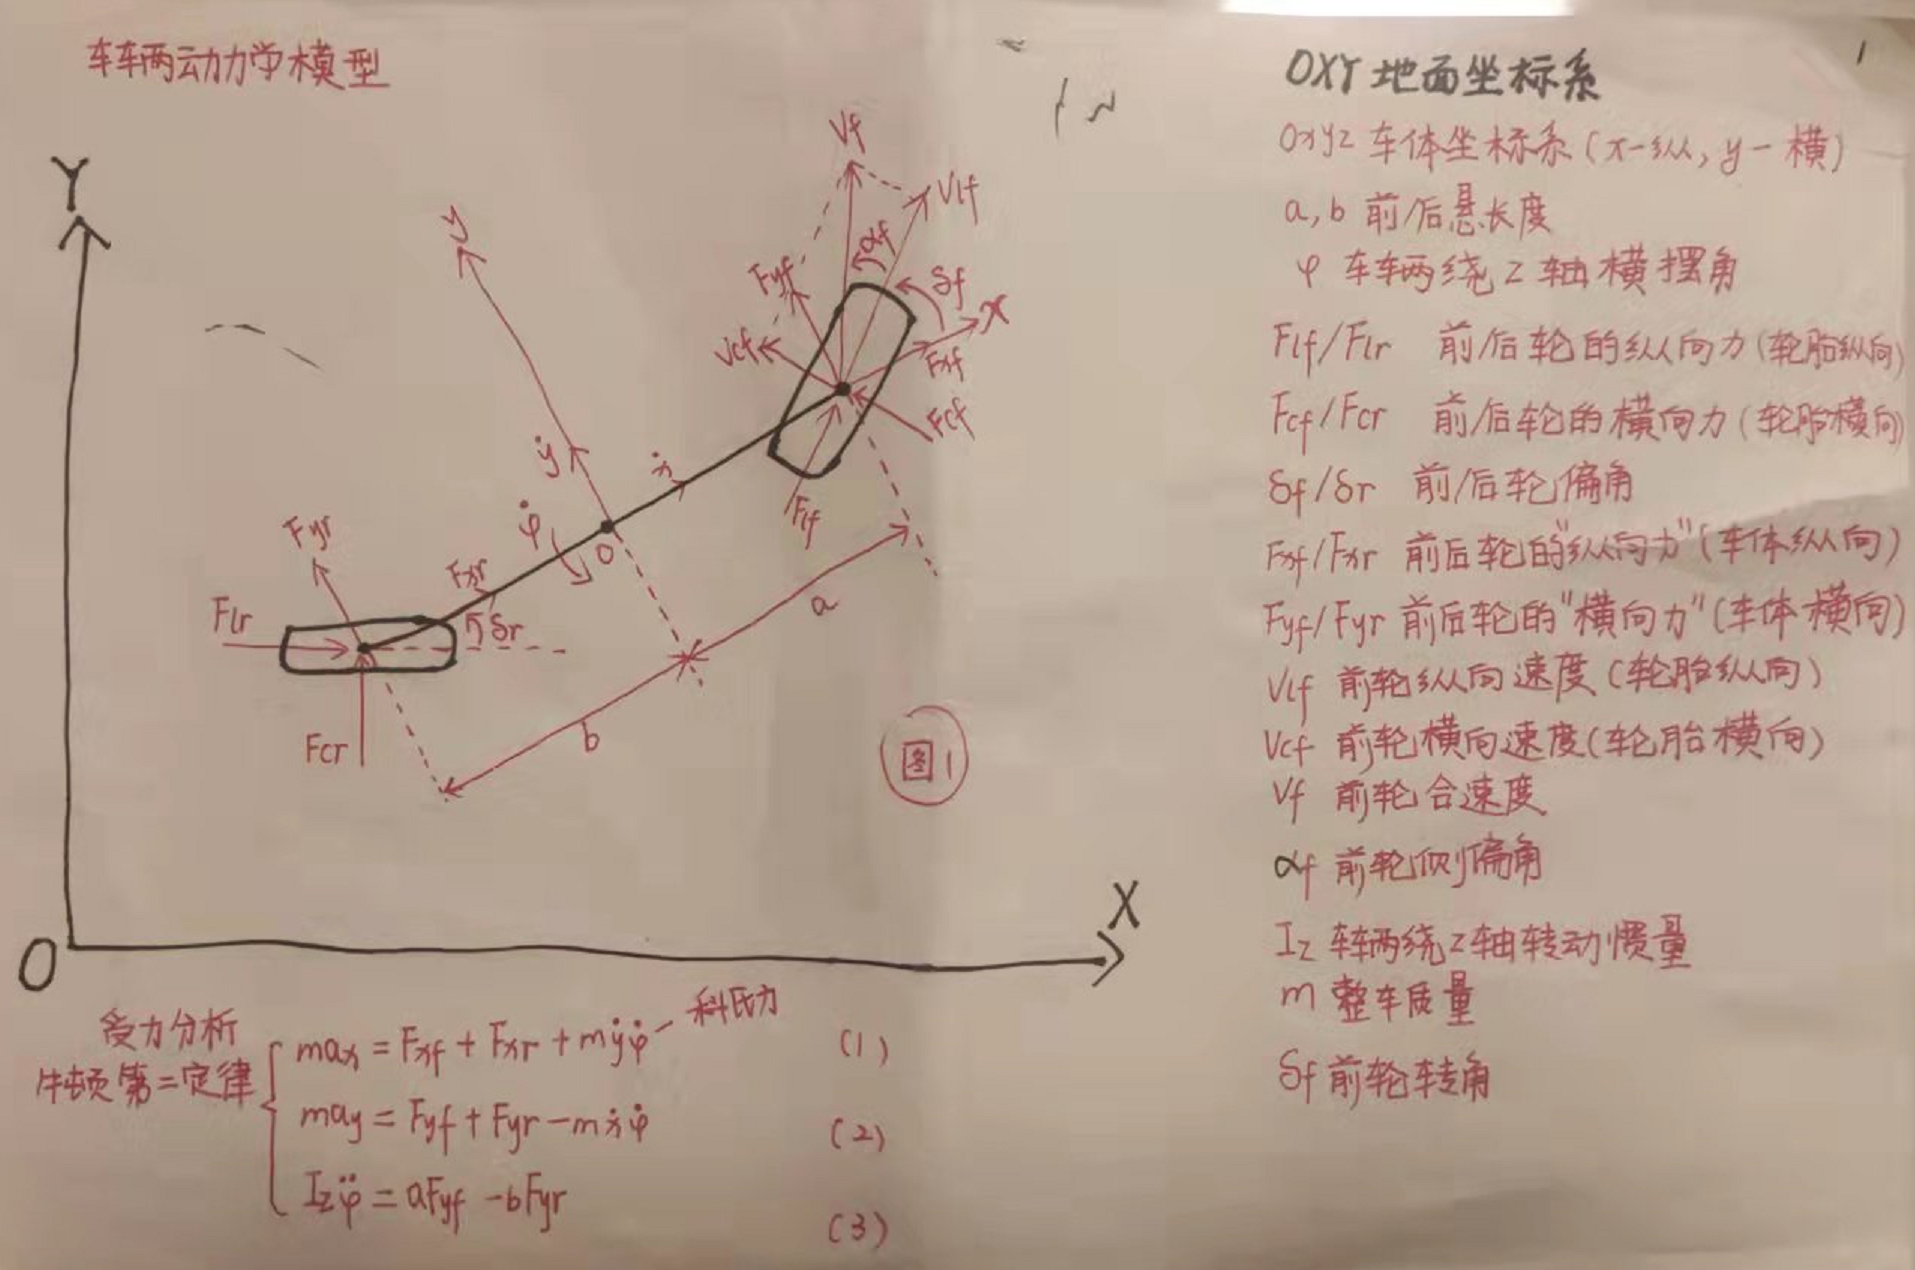 车辆动力学模型
Y
y
Vf
Vlf
αf
Fyf
δf
x
Vcf
Fxf
Fcf
ẏ
ẋ
φ̇
Flf
O
a
Fyr
Fxr
Flr
δr
Fcr
b
图1
X
O
受力分析
牛顿第二定律
max = Fxf + Fxr + mẏφ̇ — 科氏力 (1)
may = Fyf + Fyr - mẋφ̇ (2)
Izφ̈ = aFyf - bFyr (3)
1
OXY 地面坐标系
oxyz 车体坐标系(x-纵, y-横)
a,b 前/后悬长度
φ 车辆绕z轴横摆角
Flf/Flr 前/后轮的纵向力(轮胎纵向)
Fcf/Fcr 前/后轮的横向力(轮胎横向)
δf/δr 前/后轮偏角
Fxf/Fxr 前后轮的"纵向力"(车体纵向)
Fyf/Fyr 前后轮的"横向力"(车体横向)
Vlf 前轮纵向速度(轮胎纵向)
Vcf 前轮横向速度(轮胎横向)
Vf 前轮合速度
αf 前轮侧偏角
Iz 车辆绕z轴转动惯量
m 整车质量
δf 前轮转角